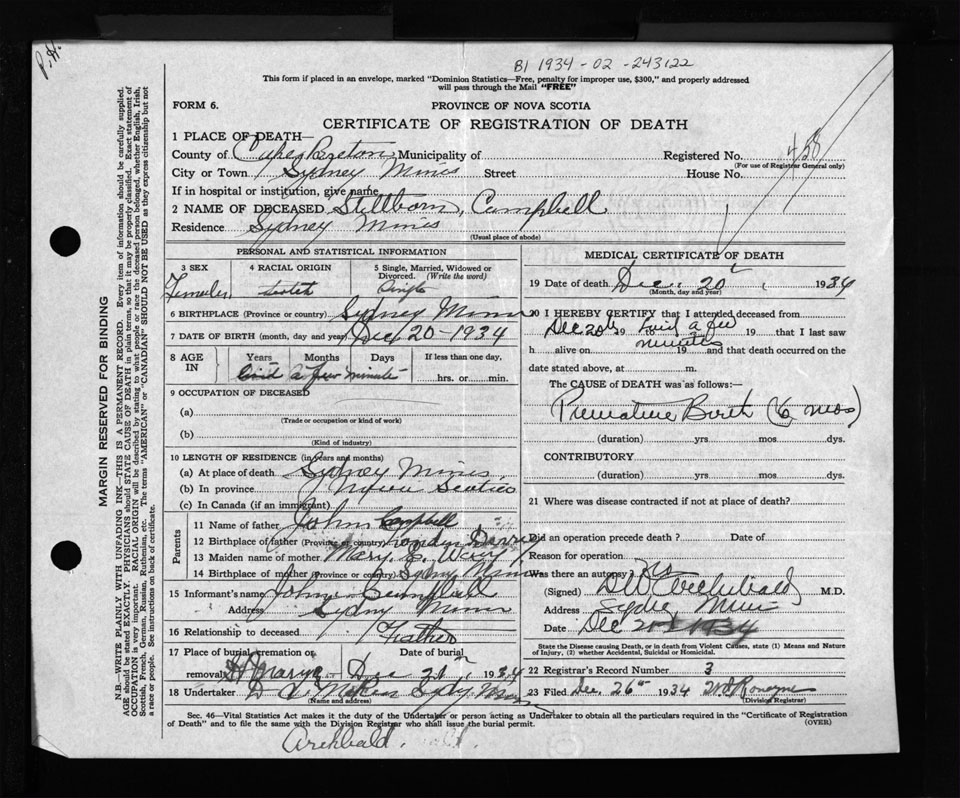 P.H.
B1 1934 - 02 - 243122
This form if placed in an envelope, marked "Dominion Statistics—Free, penalty for improper use, $300," and properly addressed
will pass through the Mail "FREE"
FORM 6.
PROVINCE OF NOVA SCOTIA
CERTIFICATE OF REGISTRATION OF DEATH
1 PLACE OF DEATH—
County of Cape Breton Municipality of Registered No. 458
(For use of Registrar General only)
City or Town Sydney Mines Street House No.
If in hospital or institution, give name
2 NAME OF DECEASED Stillborn, Campbell
Residence Sydney Mines
(Usual place of abode)
PERSONAL AND STATISTICAL INFORMATION
3 SEX
Female
4 RACIAL ORIGIN
5 Single, Married, Widowed or
Divorced. (Write the word)
Single
6 BIRTHPLACE (Province or country) Sydney Mines
7 DATE OF BIRTH (month, day and year) Dec 20 - 1934
8 AGE IN Years Months Days If less than one day,
lived a few minutes hrs. or min.
9 OCCUPATION OF DECEASED
(a)
(Trade or occupation or kind of work)
(b)
(Kind of industry)
10 LENGTH OF RESIDENCE (in years and months)
(a) At place of death Sydney Mines
(b) In province Nova Scotia
(c) In Canada (if an immigrant)
Parents
11 Name of father John Campbell
12 Birthplace of father (Province or country)
13 Maiden name of mother Mary E.
14 Birthplace of mother (Province or country) Sydney Mines
15 Informant's name John Campbell
Address Sydney Mines
16 Relationship to deceased Father
17 Place of burial, cremation or
removal Date of burial
Dec 21 1934
18 Undertaker Sydney Mines
(Name and address)
MEDICAL CERTIFICATE OF DEATH
19 Date of death Dec. 20 1934
(Month, day and year)
20 I HEREBY CERTIFY that I attended deceased from
Dec 20th 19 lived a few 19 that I last saw
minutes
h alive on 19 and that death occurred on the
date stated above, at m.
The CAUSE of DEATH was as follows:—
Premature Birth (6 mos)
(duration) yrs mos dys.
CONTRIBUTORY
(duration) yrs mos dys.
21 Where was disease contracted if not at place of death?
Did an operation precede death ? Date of
Reason for operation
Was there an autopsy
(Signed) Archibald M.D.
Address Sydney Mines
Date Dec 20 1934
State the Disease causing Death, or in death from Violent Causes, state (1) Means and Nature
of Injury, (2) whether Accidental, Suicidal or Homicidal.
22 Registrar's Record Number 3
23 Filed Dec. 26th 1934
(Division Registrar)
Sec. 46—Vital Statistics Act makes it the duty of the Undertaker or person acting as Undertaker to obtain all the particulars required in the "Certificate of Registration
of Death" and to file the same with the Division Registrar who shall issue the burial permit.
(OVER)
Archbald.
MARGIN RESERVED FOR BINDING
N.B.—WRITE PLAINLY WITH UNFADING INK—THIS IS A PERMANENT RECORD. Every item of information should be carefully supplied.
AGE should be stated EXACTLY. PHYSICIANS should STATE CAUSE OF DEATH in plain terms, so that it may be properly classified. Exact statement of
OCCUPATION is very important. RACIAL ORIGIN will be described by stating to what people or race the deceased person belonged, whether English, Irish,
Scottish, French, German, Russian, Ruthenian, etc. The terms "AMERICAN" or "CANADIAN" SHOULD NOT BE USED as they express citizenship but not
a race or people. See instructions on back of certificate.